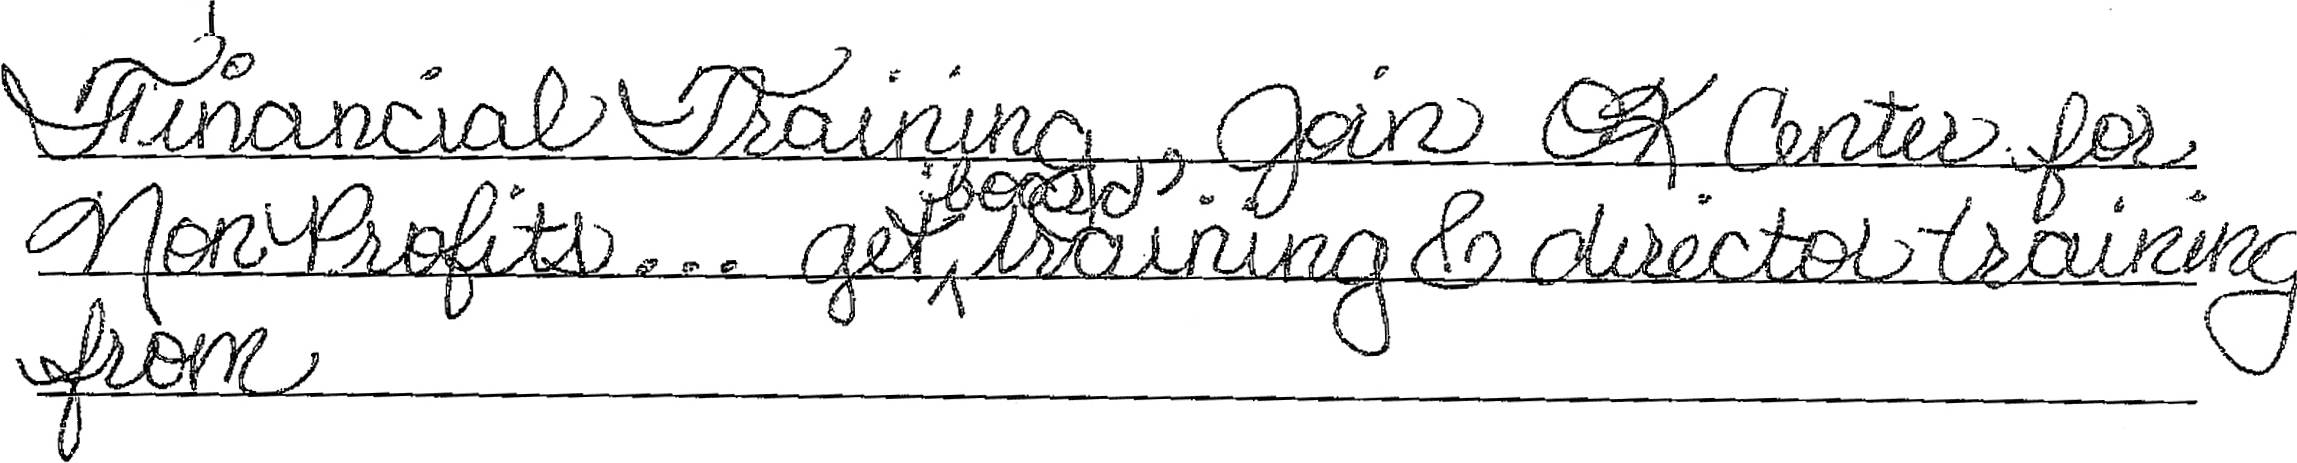 Financial Training, Join OK Center for
Non Profits... get board training & director training
from